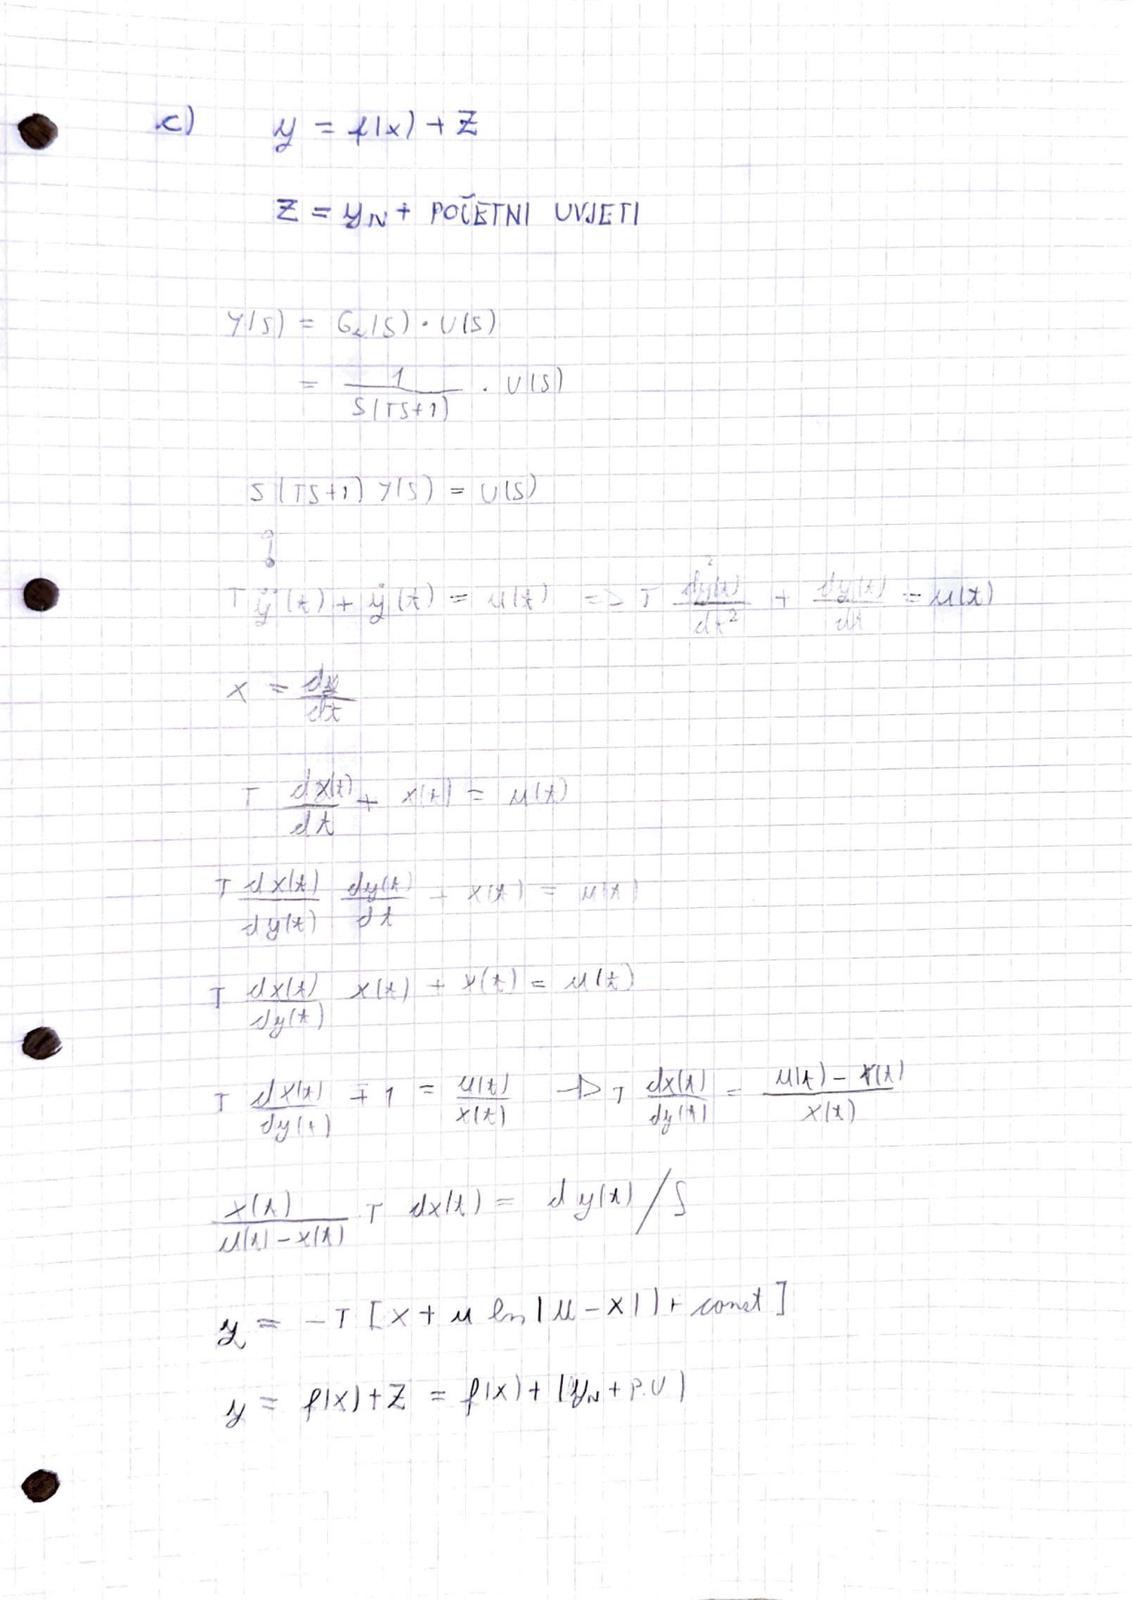 c) y = f(x) + Z
Z = yN + POČETNI UVJETI
Y(S) = G2(S) · U(S)
= 1 / S(TS+1) · U(S)
S(TS+1) Y(S) = U(S)
T ÿ(t) + ẏ(t) = u(t) => T d²y(t)/dt² + dy(t)/dt = u(t)
x = dy/dt
T dx(t)/dt + x(t) = u(t)
T dx(t)/dy(t) dy(t)/dt + x(t) = u(t)
T dx(t)/dy(t) x(t) + x(t) = u(t)
T dx(t)/dy(t) + 1 = u(t)/x(t) → T dx(t)/dy(t) = u(t) - x(t) / x(t)
x(t) / u(t) - x(t) · T dx(t) = dy(t) / ∫
y = -T [x + u ln|u - x|) + const]
y = f(x) + Z = f(x) + (yN + P.U)